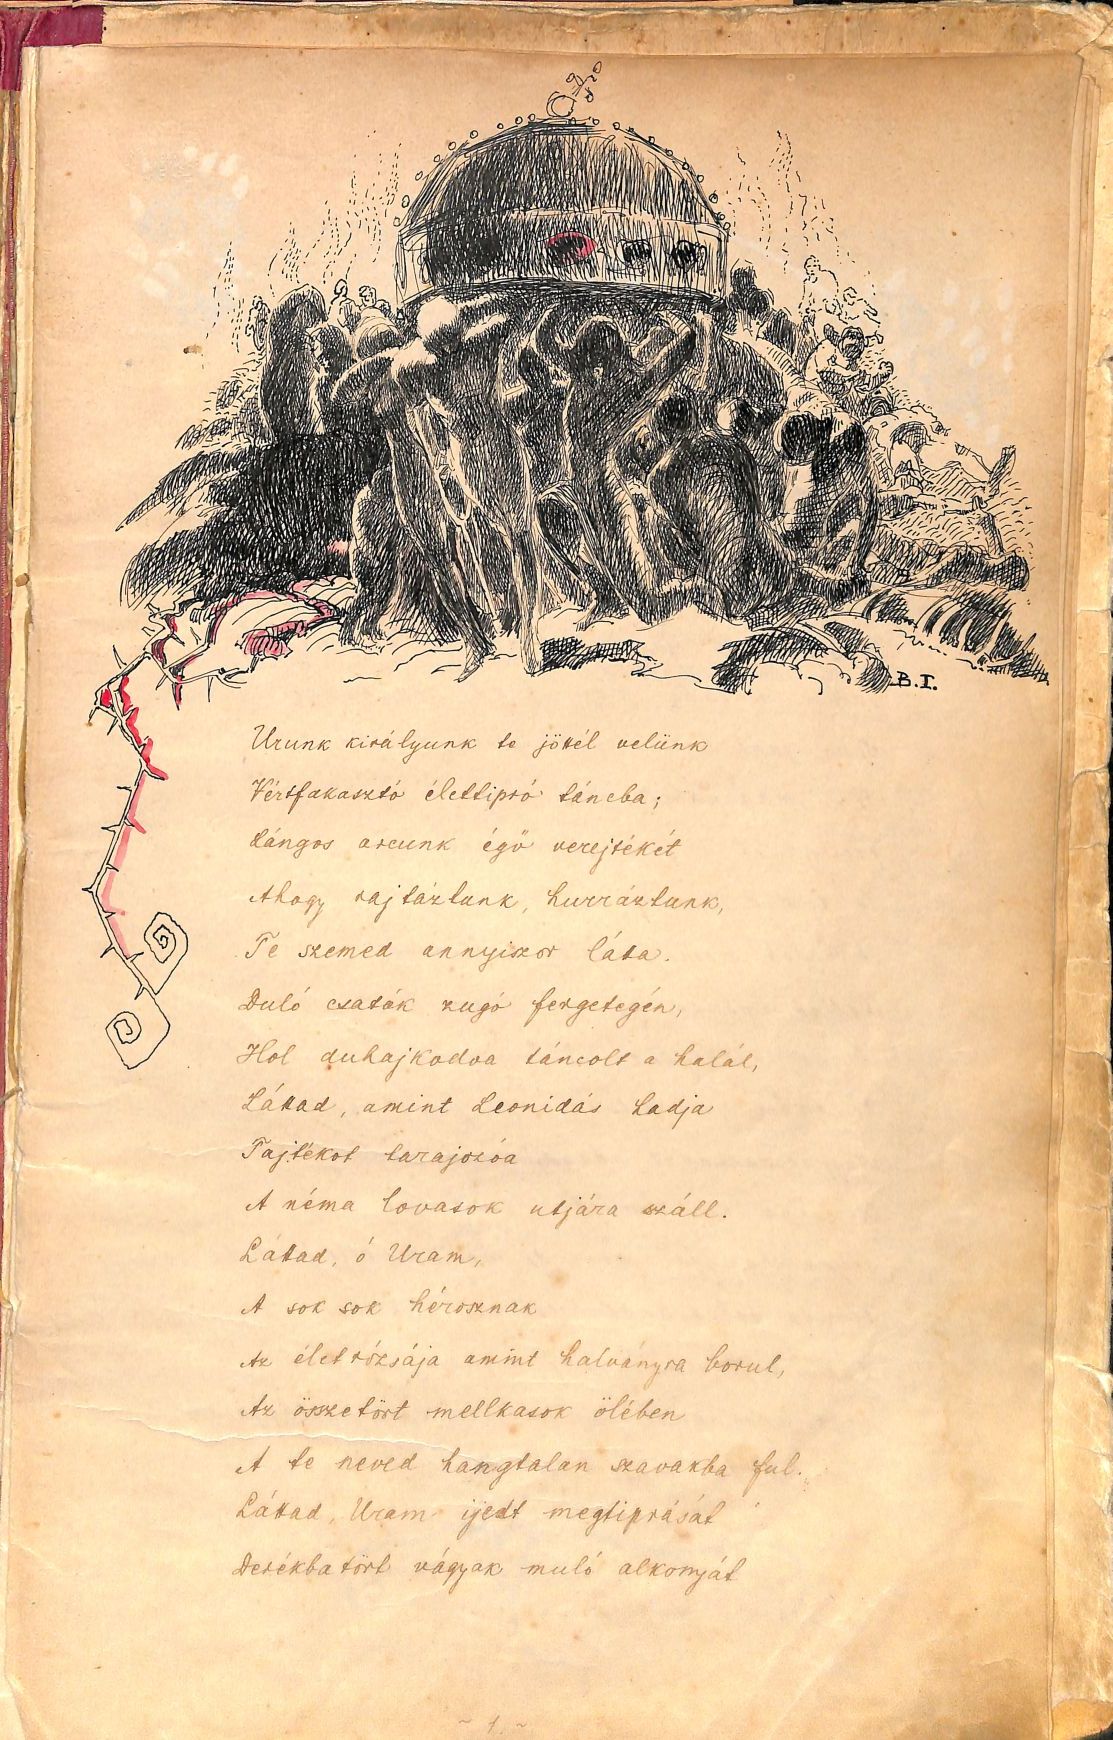 B.I.
Urunk királyunk te jöttél velünk
Vértfakasztó élettipró táncba;
Lángos arcunk égő verejtékét
Ahogy rajtáztunk, hurráztunk,
Te szemed annyiszor láta.
Duló csaták zugó fergetegén,
Hol duhajkodva táncolt a halál,
Láttad, amint Leonidás hadja
Tajtékot tarajozva
A néma lovasok utjára száll.
Láttad, ó Uram,
A sok sok hérosznak
Az élet rózsája amint halványra borul,
Az összetört mellkasok ölében
A te neved hangtalan szavakba ful.
Láttad, Uram ijedt megtiprását
Derékba tört vágyak muló alkonyát
~ 1. ~